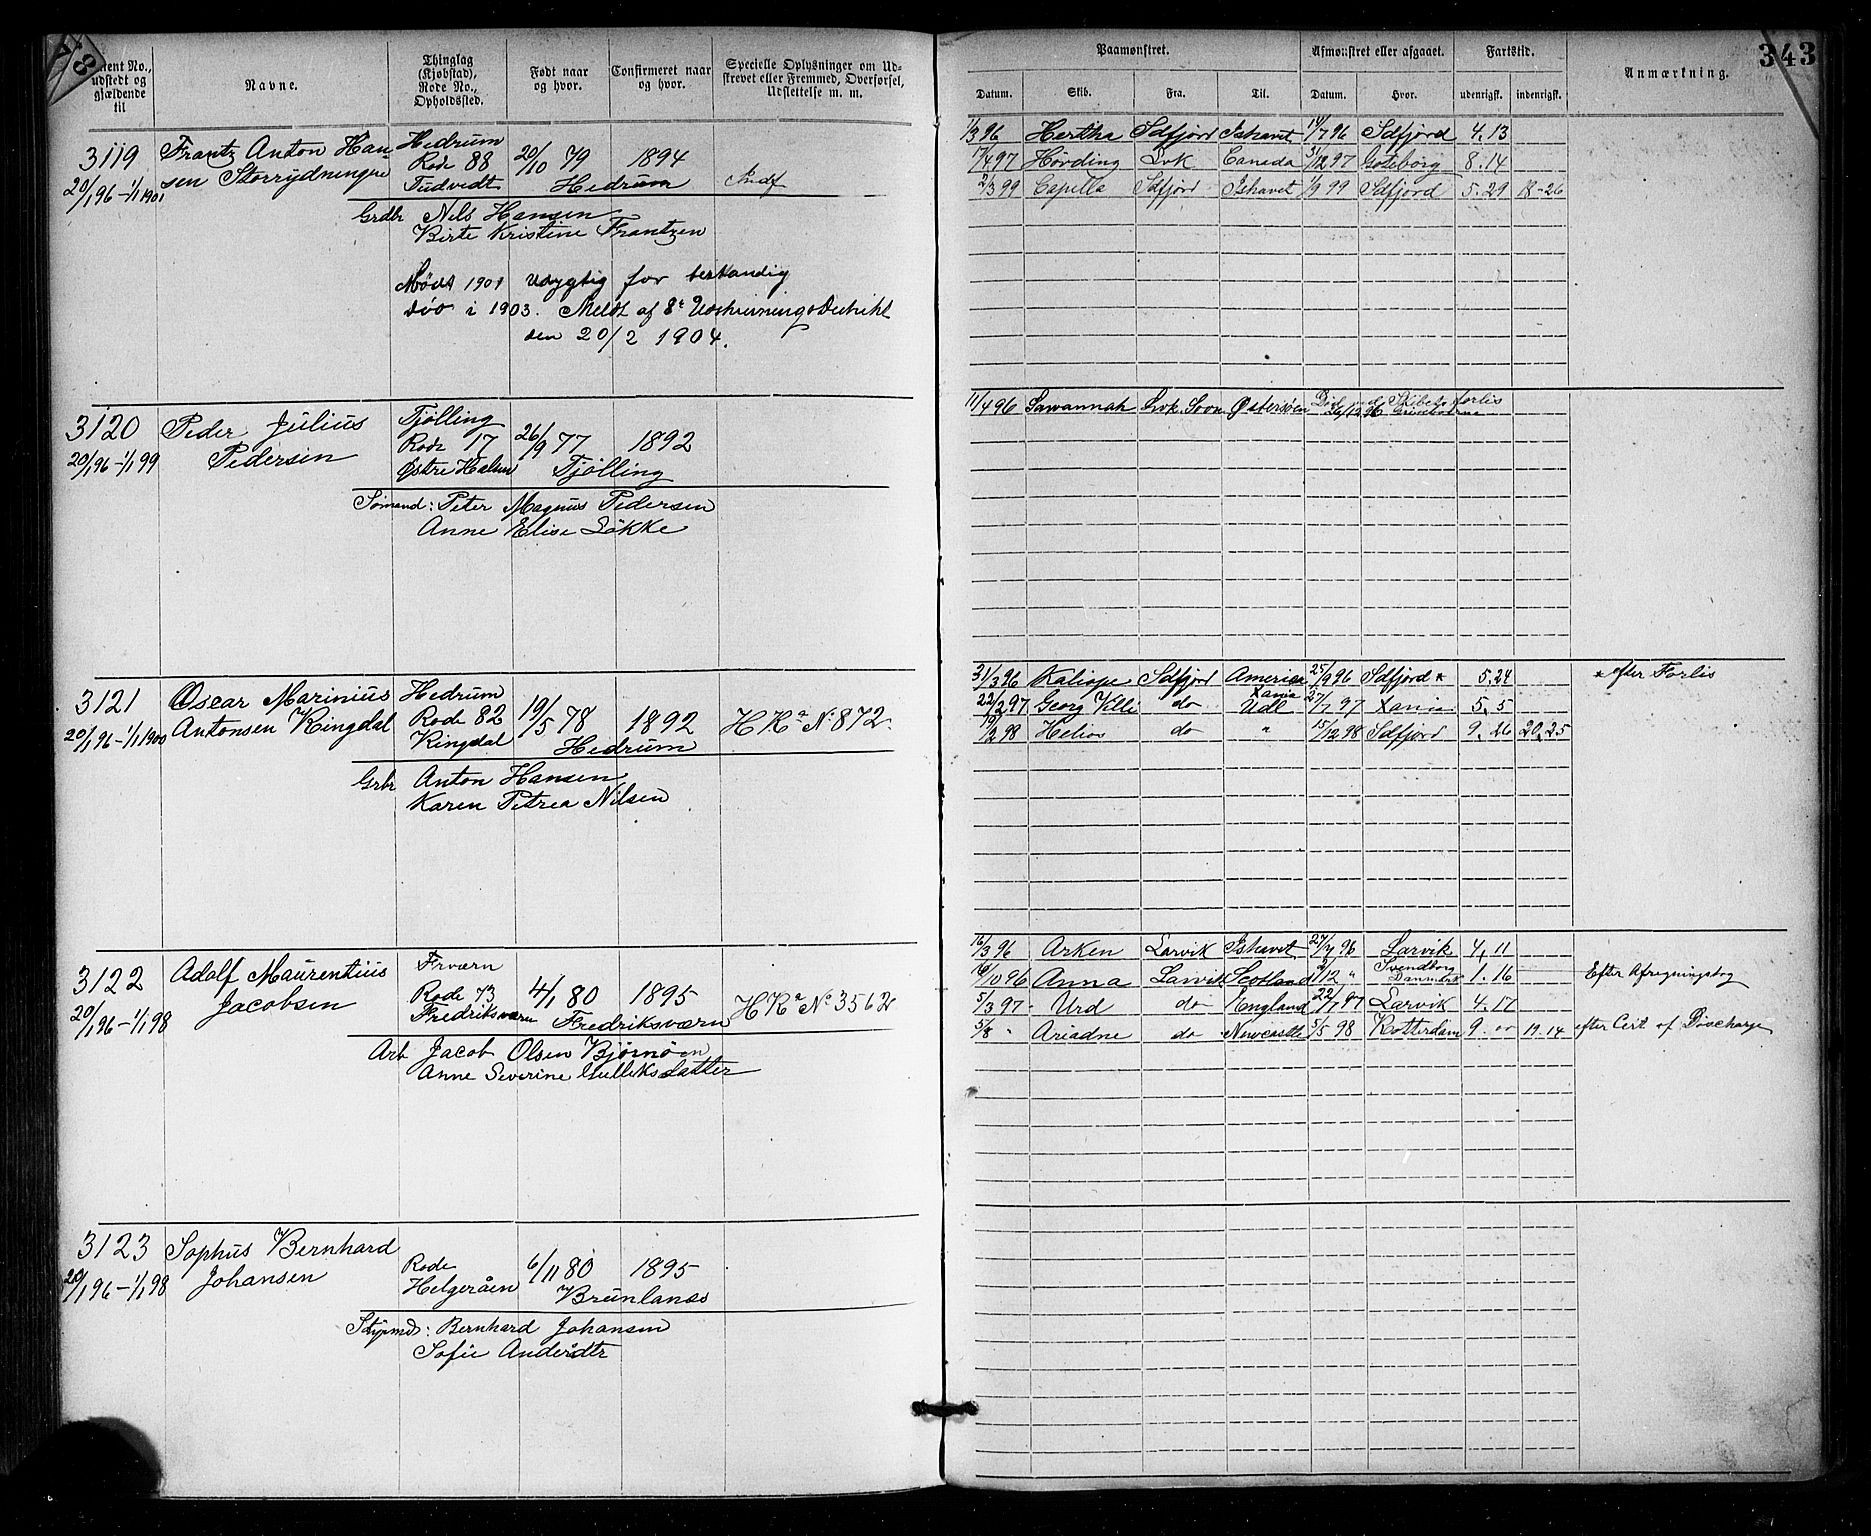 343
Patent No., udstedt og gjældende til
Navne.
Thinglag (Kjøbstad), Rode No., Opholdssted.
Født naar og hvor.
Confirmeret naar og hvor.
Specielle Oplysninger om Udskrevet eller Fremmed, Overførsel, Udslettelse m. m.
Paamønstret.
Afmønstret eller afgaaet.
Fartstid.
Anmærkning.
Datum.
Skib.
Fra.
Til.
Datum.
Hvor.
udenrigsk.
indenrigsk.
3119 Frantz Anton Han- Hedrum
sen Storrydningen Rode 88 20/10 79 1894
20/1 96 - 1/1 1901 Tudvedt Hedrum
Grdbr Nils Hansen
Birte Kristine Frantzen
Mødt 1901 Udygtig for bestandig
død i 1903. Meldt af 8t Udskrivningsdistrikt
den 20/2 1904.
1/3 96 Hertha Sdfjord Ishavet 14/7 96 Sdfjord 4.13
17/4 97 Hørding Lvk Canada 31/12 97 Gøteborg 8.14
2/3 99 Capella Sdfjord Ishavet 1/9 99 Sdfjord 5.29 18-26
3120 Peder Julius Tjølling
Pedersen Rode 17 26/9 77 1892
20/1 96 - 1/1 99 Østre Halsen Tjølling
Sømand: Peter Magnus Pedersen
Anne Elise Løkke
11/4 96 Sawannah Lvk. Soon Østersøen Død ved Skibets Forlis
26/12 96
3121 Oscar Marinius Hedrum
Antonsen Ringdal Rode 82 19/5 78 1892 HRa No 872.
20/1 96 - 1/1 1900 Ringdal Hedrum
Grbr Anton Hansen
Karen Petrea Nilsen
31/3 96 Kaliope Sdfjord America 25/9 96 Sdfjord * 5.24 * efter Forlis
22/2 97 Georg do Xania Udl 27/7 97 Xania 5.5
19/2 98 Helios do " 15/12 98 Sdfjord 9.26 20.25
3122 Adolf Maurentius Frværn
Jacobsen Rode 73 4/1 80 1895 HRa No 3562
20/1 96 - 1/1 98 Fredriksværn Fredriksværn
Arb Jacob Olsen Bjørnøen
Anne Severine Gulliksdatter
16/3 96 Arken Larvik Ishavet 27/7 96 Larvik 4.11
/10 96 Anna Larvik Scotland /12 " Svendborg Danmark 1.16 Efter Afregningsbog
5/3 97 Urd do England 22/7 97 Larvik 4.17
5/8 " Ariadne do Newcastle 5/5 98 Rotterdam 9. " 19.14 efter Cert of Discharge
3123 Sophus Bernhard
Johansen Rode 6/11 80 1895
20/1 96 - 1/1 98 Helgeråen Brunlanæs
Stuprmd: Bernhard Johansen
Sofie Andersdtr